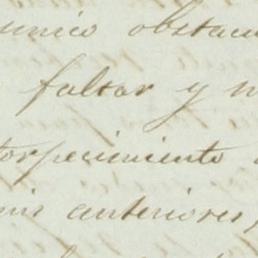 unico obstacu
faltar y n
torpecimiento
mis anteriores,